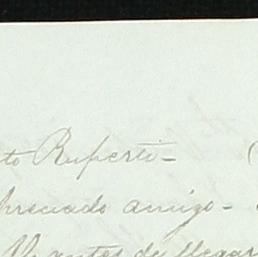 to Ruperti-
preciado amigo-
antes de llegar